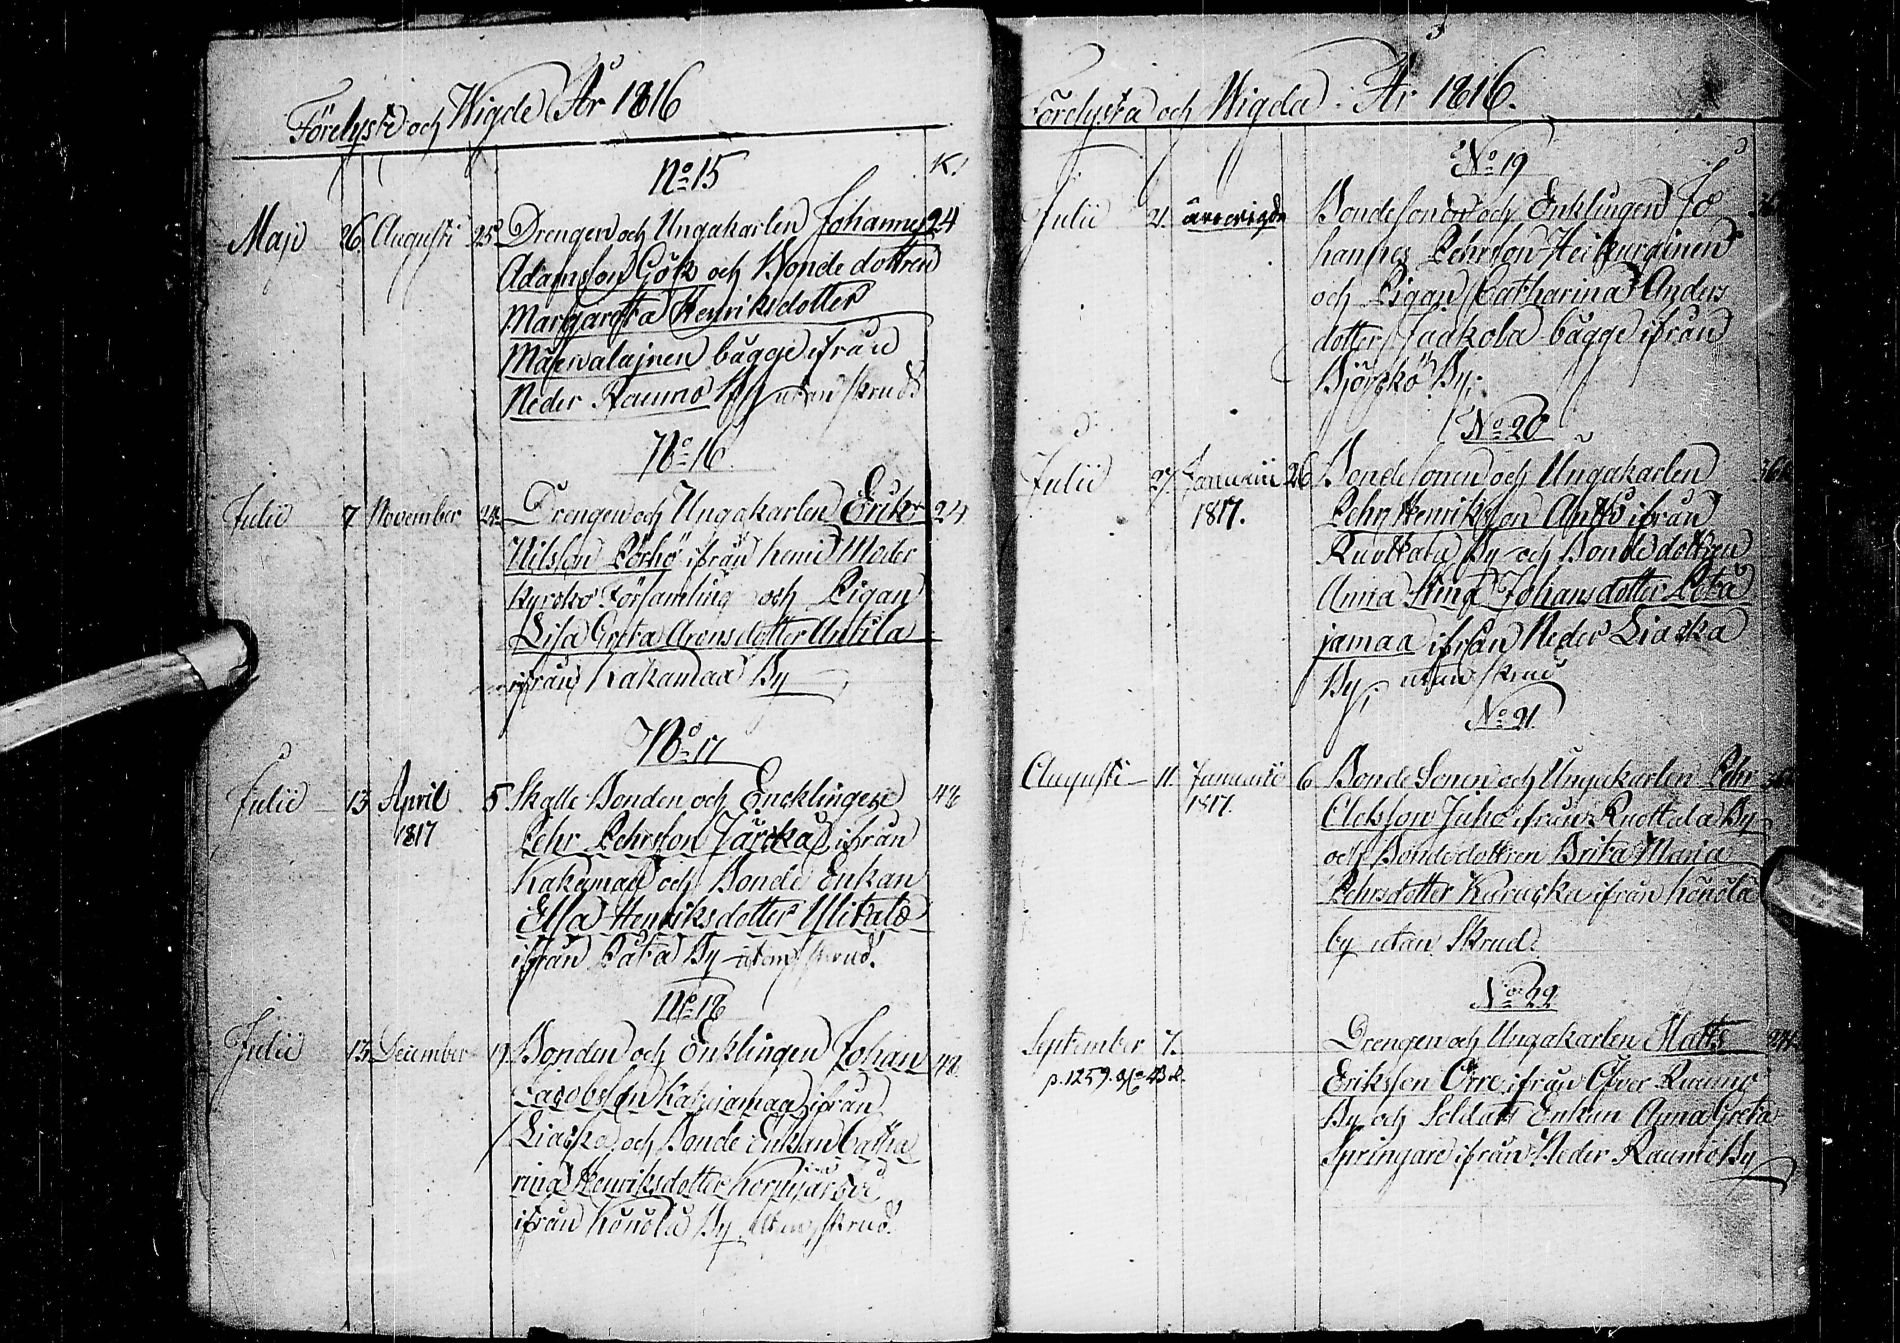 Förelyste och Wigde År 1816
No 15
K.
Maji 26 Augusti 25 Drengen och Ungakarlen Johannes 24
Adamsson Gök och Bonde dottren
Margareta Henriksdotter
bägge ifrån
Neder Raumo By utan skrud
No 16
Julii 7 November 24 Drengen och Ungakarlen Erik 24
Nilsson ifrån Kemi Moder
Kyrcko Församling och Pigan
Lisa Greta Arensdotter Antila
ifrån Kakamaa By
No 17
Julii 13 April 5 Skatte Bonden och Encklingen 48
1817 Pehr Pehrsson ifrån
Kakamaa och Bonde Enkan
Elsa Henriksdotter Ylitalo
ifrån By utan skrud.
No 18
Julii 13 December Bonden och Enklingen Johan 48
Jacobsson ifrån
Liacka och Bonde Enkan Catha
rina Henriksdotter
ifrån Könölä By utan skrud.
3
Förelysta och Wigda År 1816.
No 19
Julii 21. Bondesonen och Enklingen Jo
hannes Pehrsson Heikurainen
och Pigan Catharina Anders
dotter Jaakola bägge ifrån
Björckö By.
No 20
Julii 27 Januarii 26 Bondesonen och Ungakarlen
1817. Pehr Henriksson ifrån
Ruottala By och Bondedottren
Anna Stina Johansdotter Peta
jamaa ifrån Neder Liacka
By, utan skrud
No 21.
Augusti 11. Januarii 6 Bonde Sonen och Ungakarlen Pehr
1817. Olofsson Juho ifrån Ruottala By
och Bondedottren Brita Maria
Pehrsdotter ifrån Könölä
by utan Skrud.
No 22
September 7. Drengen och Ungakarlen Matts 24
p. 1259.
Eriksson Orre ifrån Öfver Raumo
By och Soldats Enkan Anna Greta
Springare ifrån Neder Raumo By